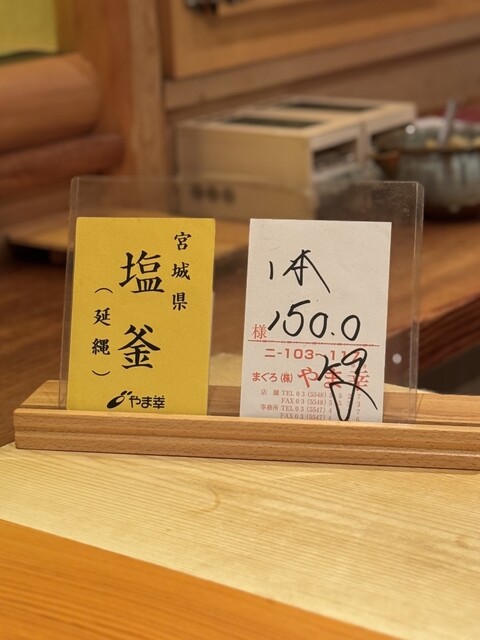 宮城県
塩釜
（延縄）
やま幸
1本
150.0
様
ニ-103〜11
まぐろ(株) やま幸
店舗 TEL 03 (5548)
FAX 03 (5548)
事務所 TEL 03 (5547) 4
FAX 03 (5547) 4